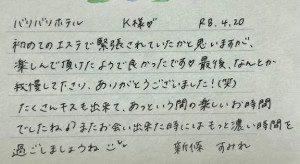 バリバリホテル K様♡ R8.4.20
初めてのエステで緊張されていたかと思いますが、
楽しんで頂けたようで良かったです♡最後、なんとか
我慢して下さい、ありがとうございました!(笑)
たくさんキスも出来て、あっという間の楽しいお時間
でしたね♪またお会い出来た時にはもっと濃い時間を
過ごしましょうね
新條 すみれ